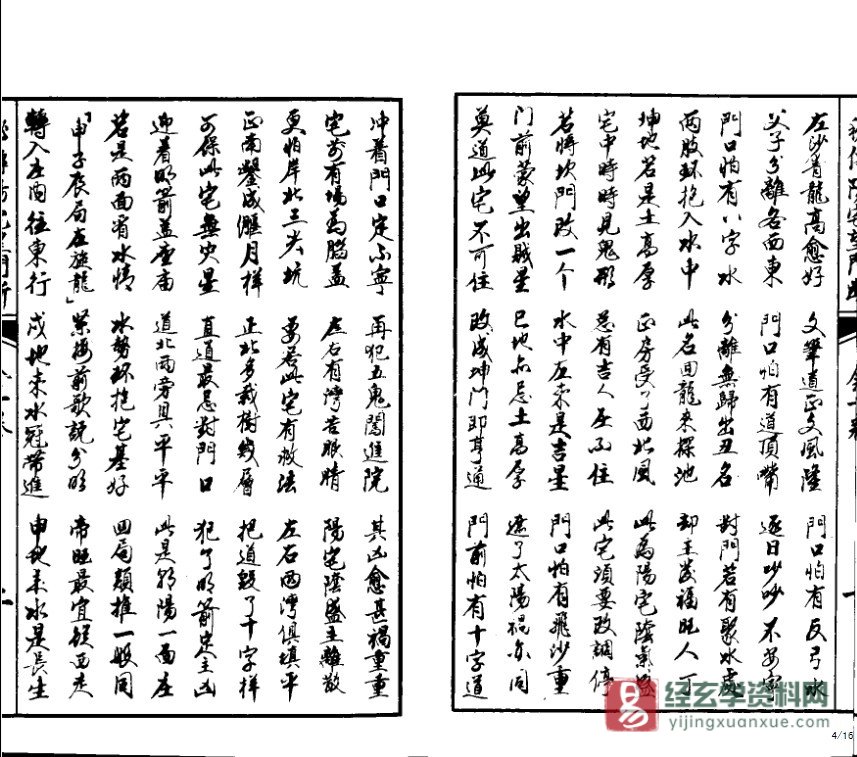 左沙青龍高愈好 文筆道正文風隆 門口怕有反弓水
父子分離各西東 門口怕有道頂嘴 逐日吵吵不安寧
門口怕有八字水 分離無歸出丑名 對門若有聚水處
兩肢环抱入水中 此名回龍來探池 却主發福旺人丁
坤地若是土高厚 正房受了西北風 此為陽宅陰氣盛
宅中時時見鬼形 总有吉人居不住 此宅須要改調停
若將坎門改一个 水中左來是吉星 門口怕有飛沙重
門前蒙望出賊星 巳地亦忌土高厚 遮了太陽禍亦同
莫道此宅不可住 改成坤門即亨通 門前怕有十字道
冲着門口定不寧 再犯五鬼闖進院 其凶愈甚禍重重
宅前有場為腦蓋 左右有灣若眼睛 陽宅陰盛主離散
更怕岸北三尖坑 要若此宅有救法 左右两灣俱填平
正南鑿成偃月樣 正北多栽樹幾層 把道毀了十字样
可保此宅無灾星 直道最忌對門口 犯了明箭定主凶
迎着明箭蓋座庙 道北两旁具平平 此是邪陽一面左
若是两面有水情 水勢环抱宅基好 四局類推一般同
「申子辰局左旋龍」 緊接前歌説分明 帝旺最宜從西走
轉入左面往東行 戌地来水冠帶進 申地来水是長生
经玄学资料网
yijingxuanxue.com
4/16